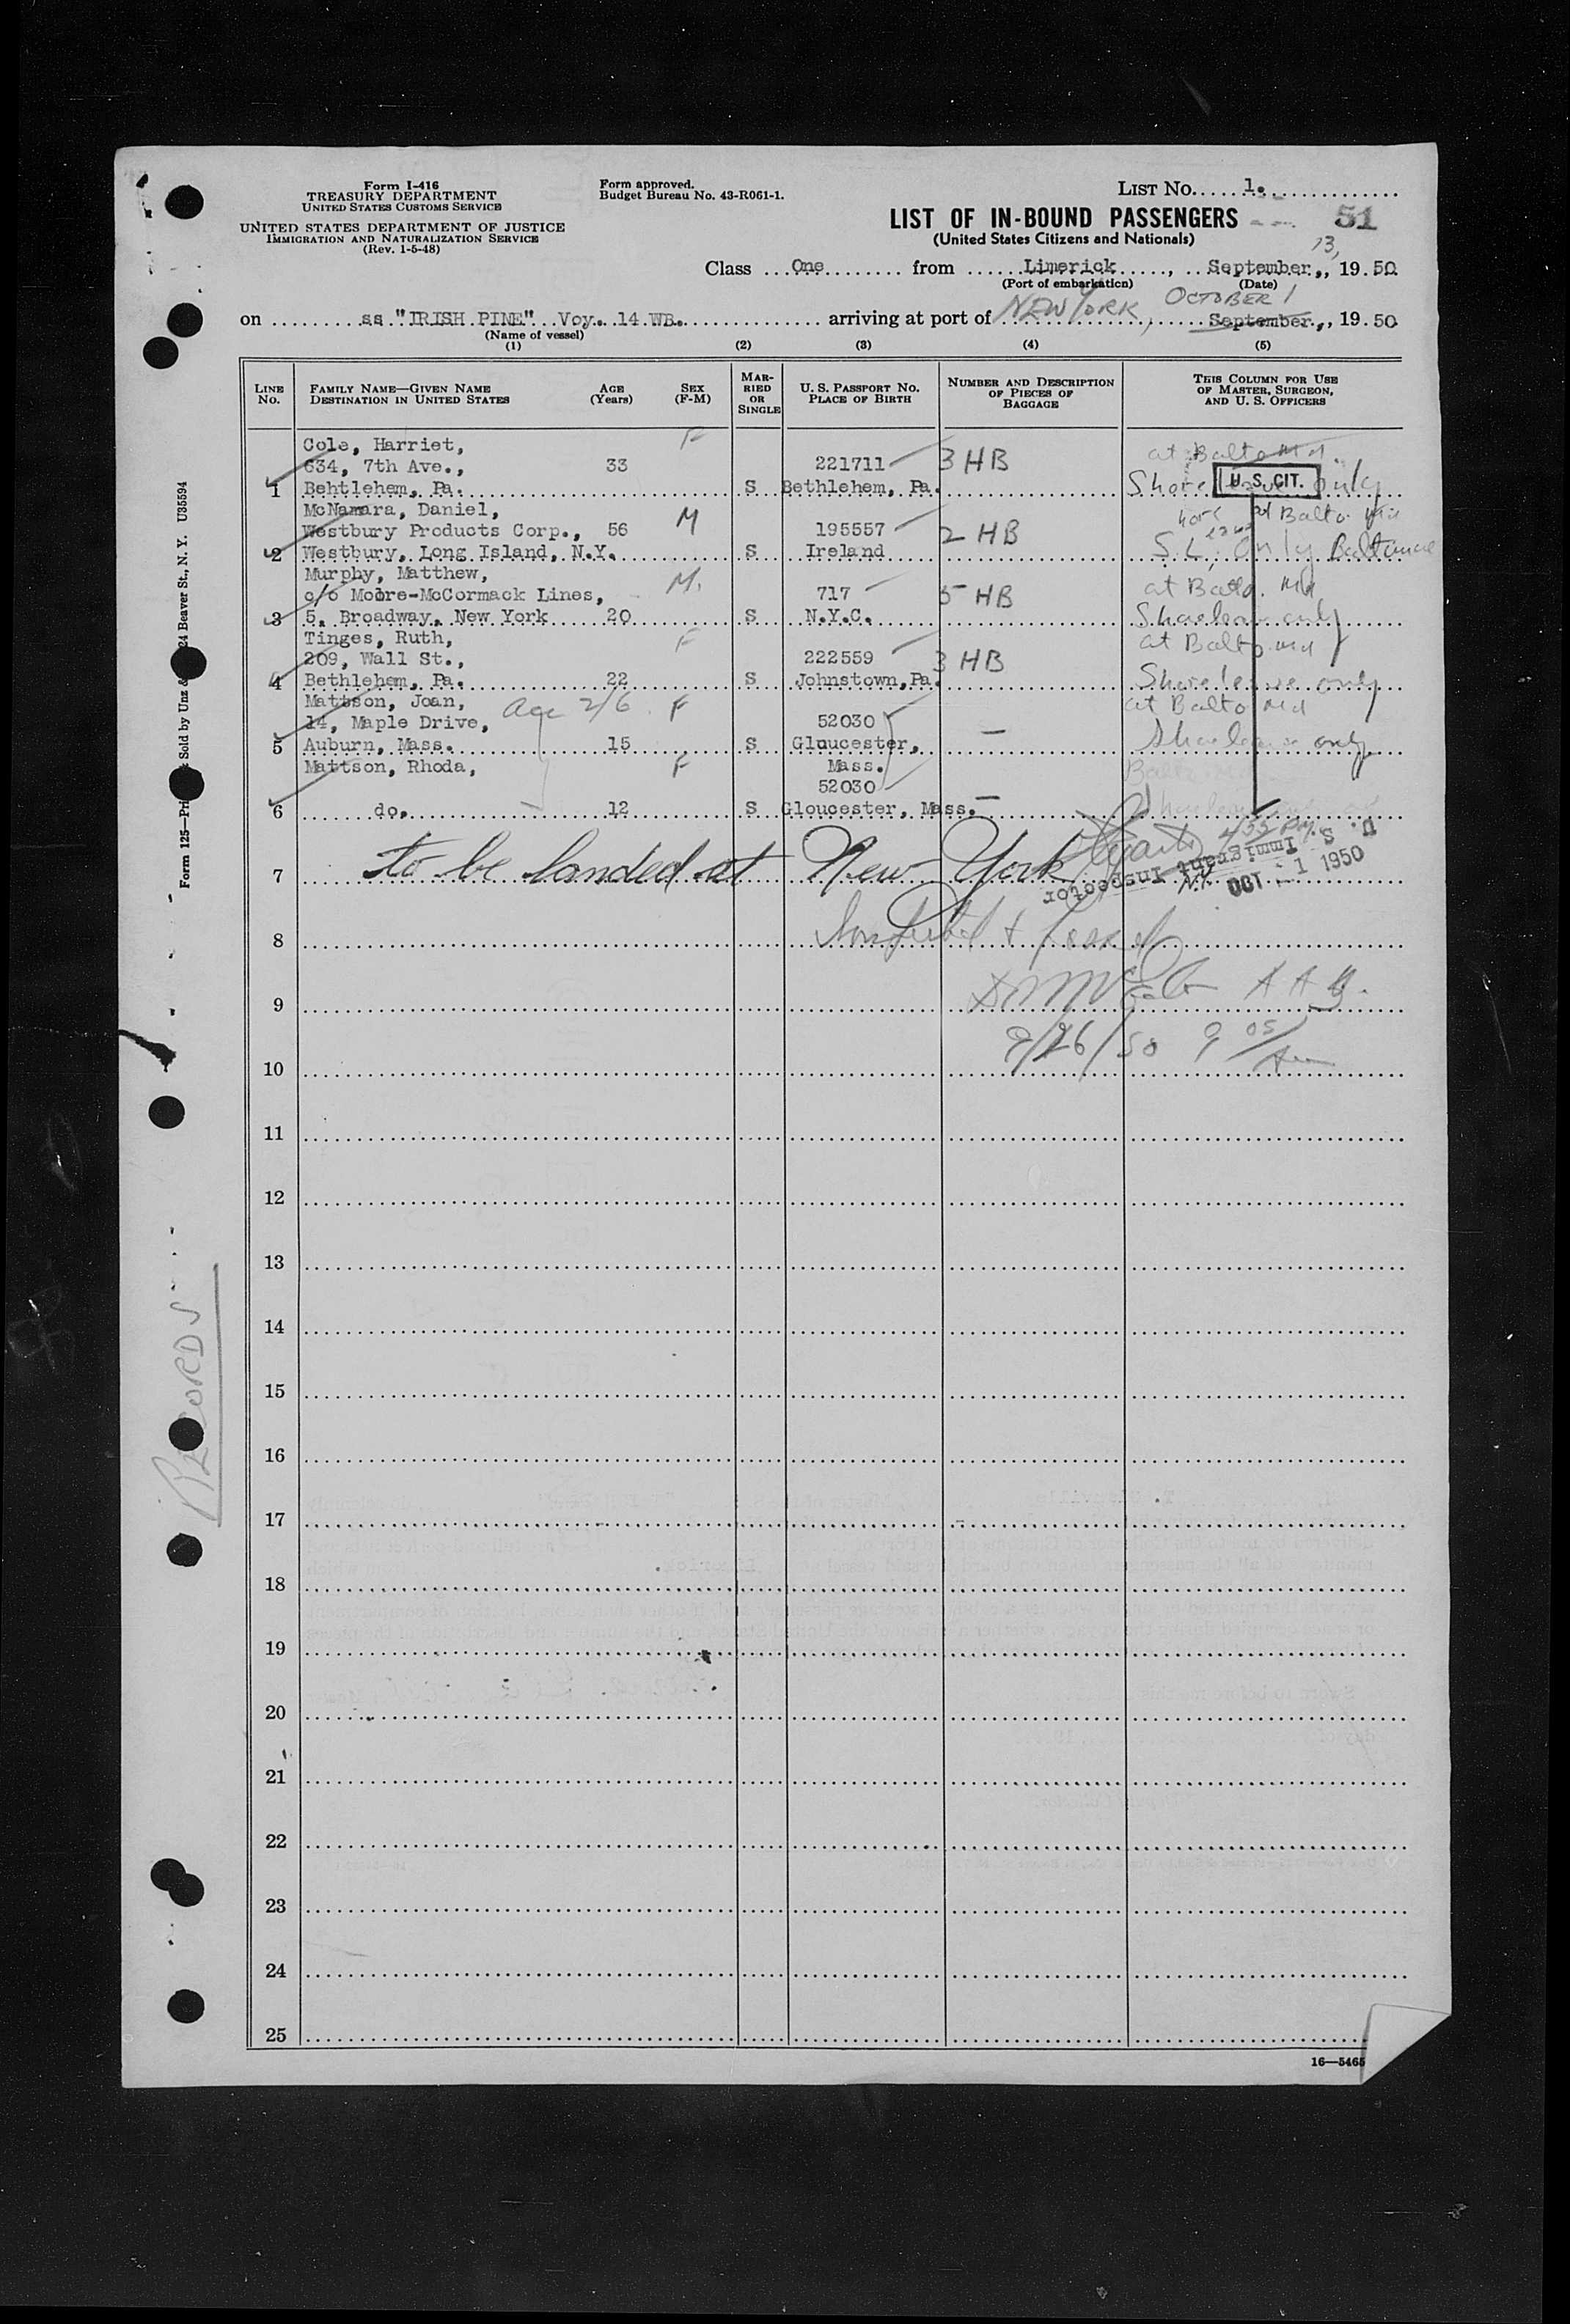 Form I-416
TREASURY DEPARTMENT
UNITED STATES CUSTOMS SERVICE
UNITED STATES DEPARTMENT OF JUSTICE
IMMIGRATION AND NATURALIZATION SERVICE
(Rev. 1-5-48)
Form approved.
Budget Bureau No. 43-R061-1.
LIST No. 1.
LIST OF IN-BOUND PASSENGERS 51
(United States Citizens and Nationals)
13,
Class One from Limerick, September, 1950
(Port of embarkation) (Date)
OCTOBER 1
on ss "IRISH PINE" Voy. 14 WB. arriving at port of NEW YORK, September, 1950
(Name of vessel)
(1) (2) (3) (4) (5)
LINE No. FAMILY NAME—GIVEN NAME DESTINATION IN UNITED STATES AGE (Years) SEX (F-M) MARRIED OR SINGLE U. S. PASSPORT No. PLACE OF BIRTH NUMBER AND DESCRIPTION OF PIECES OF BAGGAGE THIS COLUMN FOR USE OF MASTER, SURGEON, AND U. S. OFFICERS
Cole, Harriet, F at Balto Md.
634, 7th Ave., 33 221711 3 HB
1 Behtlehem, Pa. S Bethlehem, Pa. Shore leave only
U. S. CIT.
McNamara, Daniel, M at Balto Md
Westbury Products Corp., 56 195557 2 HB
2 Westbury, Long Island, N.Y. S Ireland S.L. only Baltimore
Murphy, Matthew, M.
c/o Moore-McCormack Lines, 717 5 HB at Balto. Md
3 5, Broadway, New York 20 S N.Y.C. Shoreleave only
Tinges, Ruth, F at Balto Md
209, Wall St., 222559 3 HB
4 Bethlehem, Pa. 22 S Johnstown, Pa. Shore leave only
Mattson, Joan, Age 2/6 F at Balto Md
14, Maple Drive, 52030 —
5 Auburn, Mass. 15 S Gloucester, Shoreleave only
Mattson, Rhoda, F Mass. Balto Md
52030 —
6 do. 12 S Gloucester, Mass.
7 to be landed at New York
U. S. Immigrant Inspector
N.Y. OCT -1 1950
8
9
9/26/50 9 05/
10
11
12
13
14
15
16
17
18
19
20
21
22
23
24
25
16—5465
24 Beaver St., N. Y. U35594
Sold by Unz &
Form 125—Pri
RECORDS